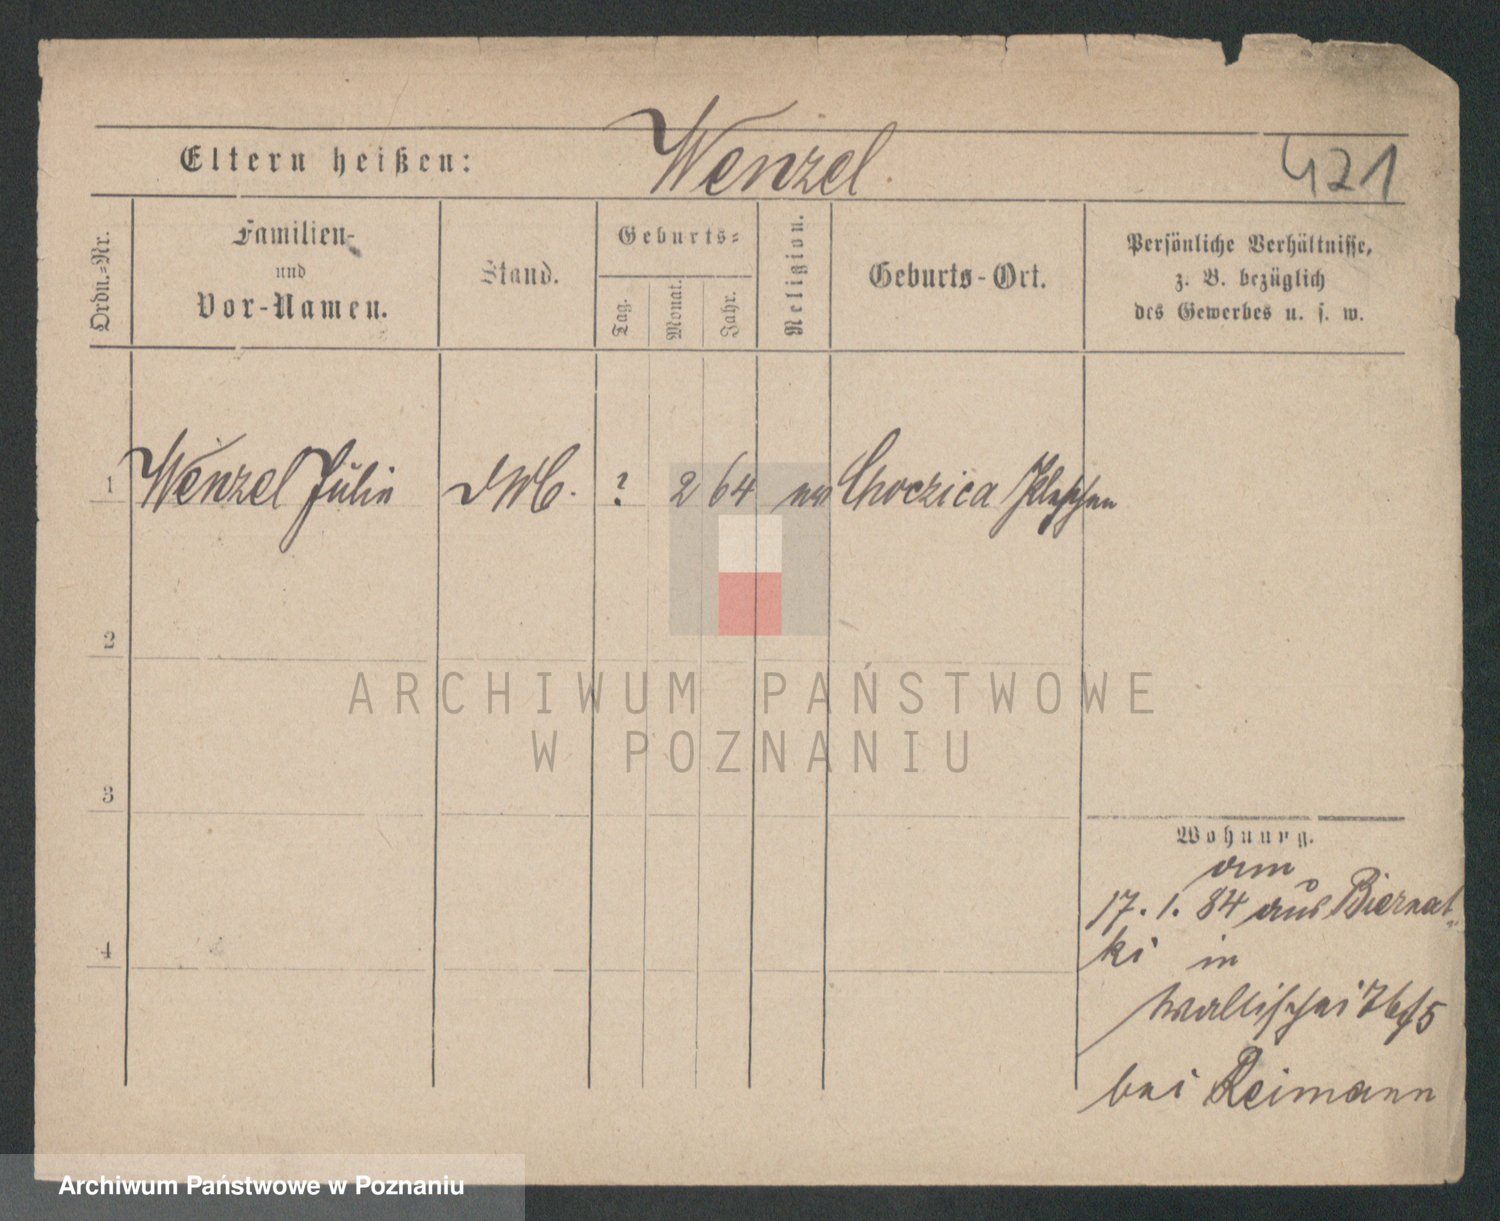 Eltern heißen: Wenzel. 421
Ordn.=Nr.
Familien-
und
Vor-Namen.
Stand.
Geburts=
Tag.
Monat.
Jahr.
Religion.
Geburts-Ort.
Persönliche Verhältnisse,
z. B. bezüglich
des Gewerbes u. s. w.
1 Wenzel Julie ? 2 64 ev Choczica Pleschen
2
ARCHIWUM PAŃSTWOWE
W POZNANIU
3
Wohnung.
am
17. 1. 84 aus Biernat„
4
ki in
Wallischei 76/5
bei Reimann
Archiwum Państwowe w Poznaniu